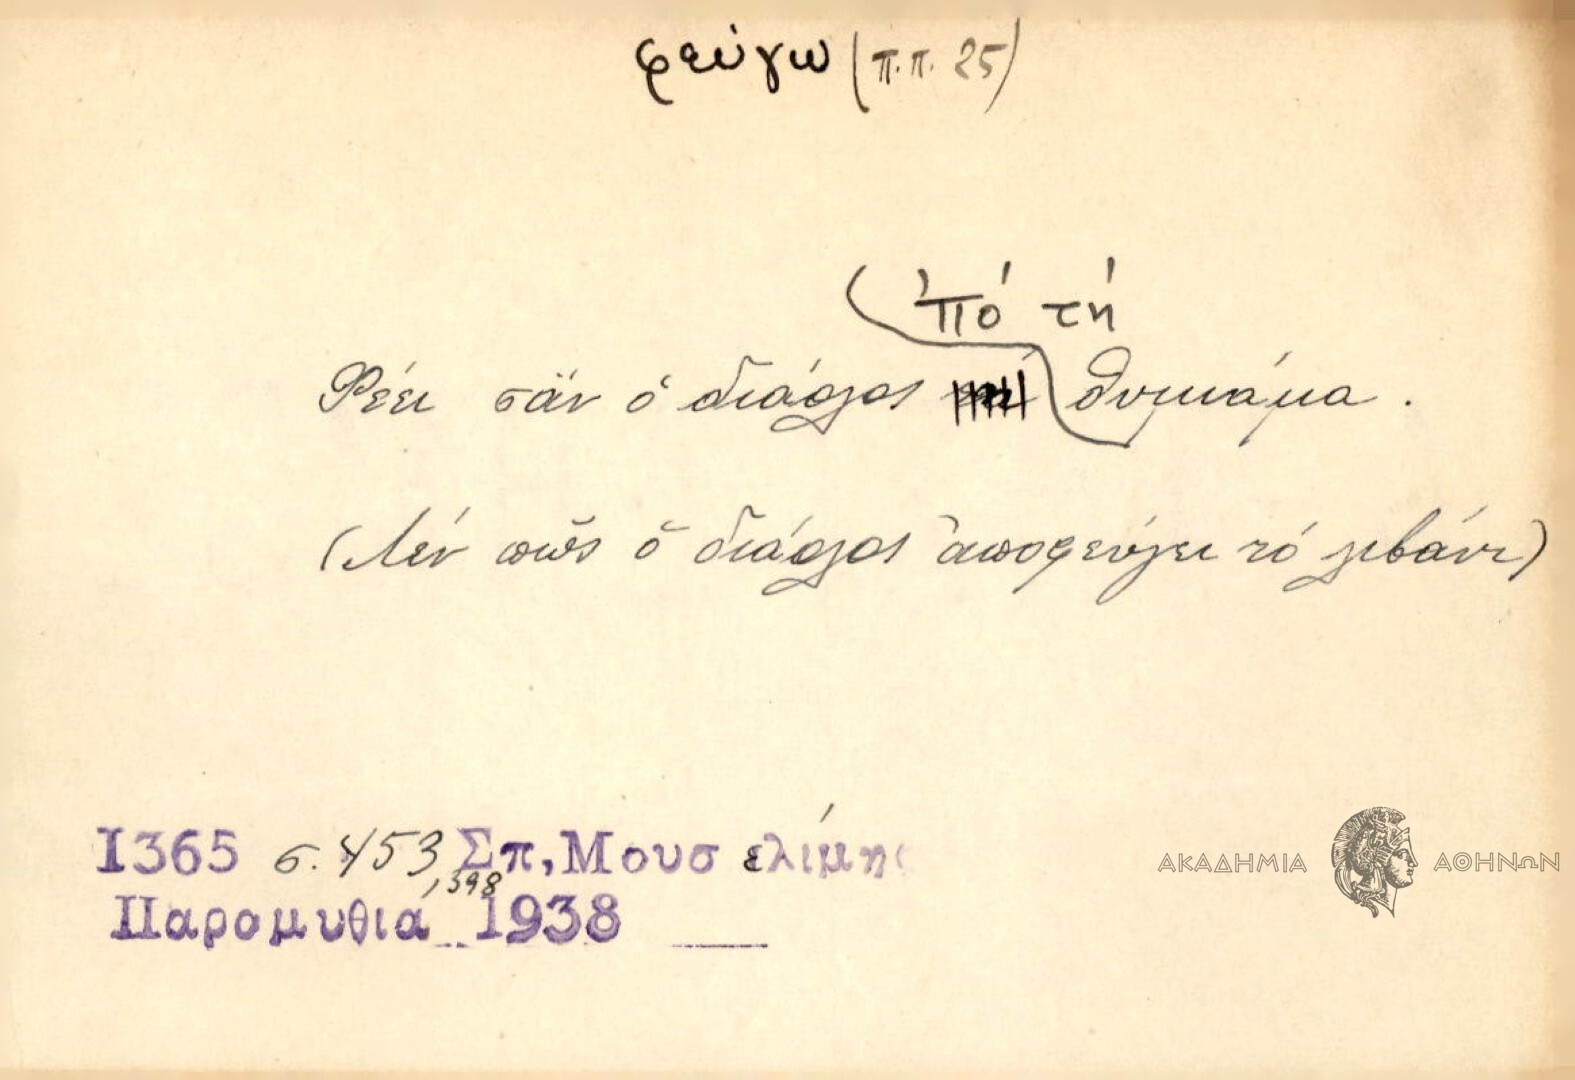 φεύγω (π.π. 25)
'πό τή
Φέει σάν ὁ διάολος θυμιάμα.
(Λέν πῶς ὁ διάολος ἀποφεύγει τό λιβάνι)
1365 σ. 453, 398 Σπ, Μουσελίμης
Παραμυθια 1938
ΑΚΑΔΗΜΙΑ ΑΘΗΝΩΝ